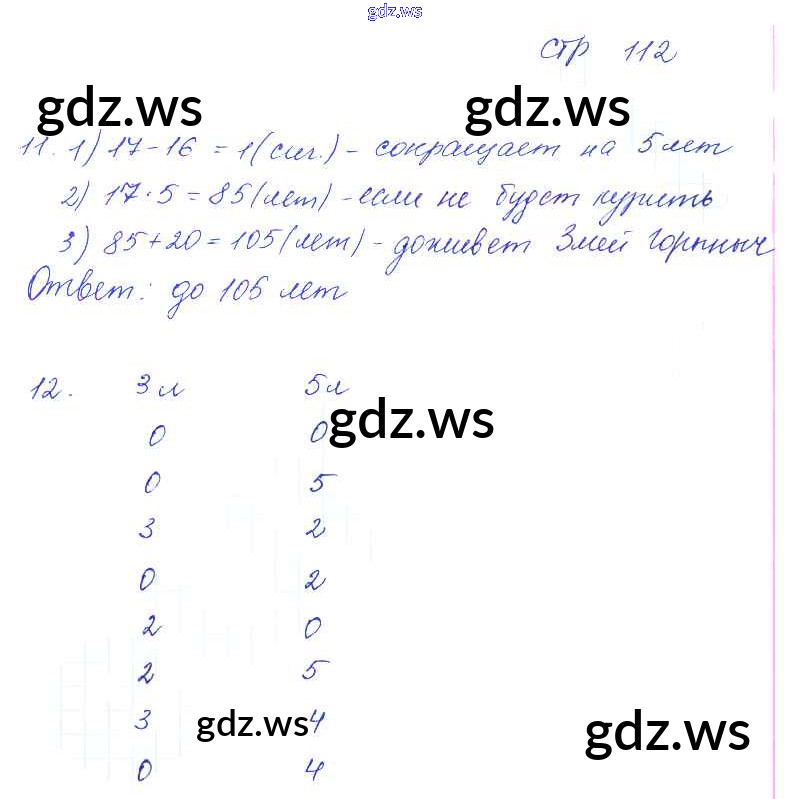 gdz.ws
стр 112
gdz.ws gdz.ws
11. 1) 17-16 = 1(сиг.) - сокращает на 5 лет
2) 17·5 = 85(лет) - если не будет курить
3) 85+20 = 105(лет) - доживет Змей Горыныч
Ответ: до 105 лет
12. 3 л 5 л
gdz.ws
0 0
0 5
3 2
0 2
2 0
2 5
3 4
gdz.ws gdz.ws
0 4